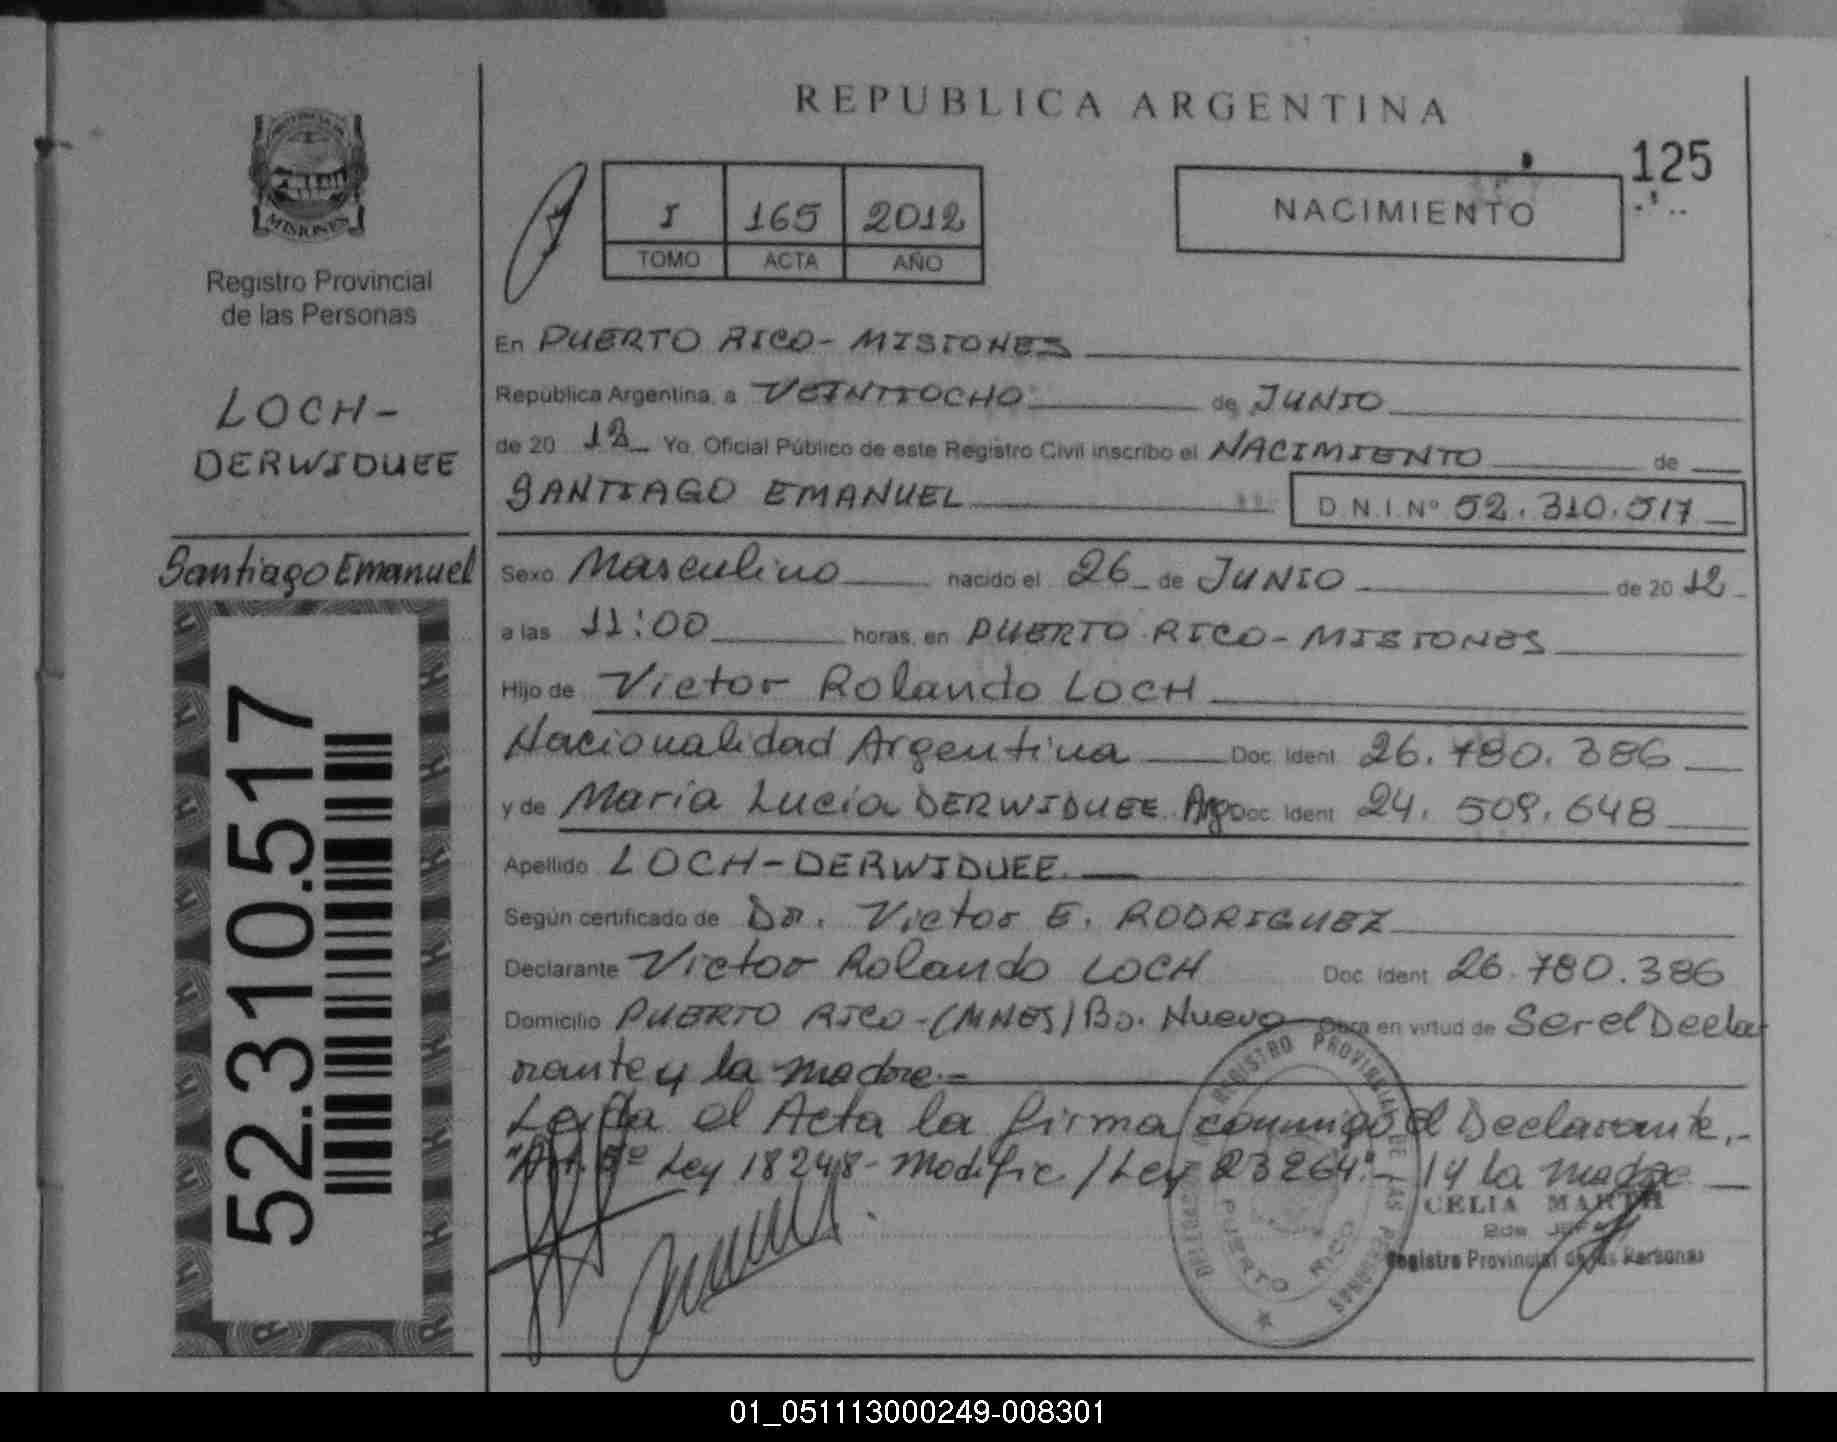 REPUBLICA ARGENTINA
125
MISIONES
Registro Provincial
de las Personas
LOCH-
DERWIDUEE
Santiago Emanuel
52.310.517
I 165 2012
TOMO ACTA AÑO
NACIMIENTO
En PUERTO RICO - MISIONES
República Argentina, a VEINTIOCHO de JUNIO
de 20 12 Yo, Oficial Público de este Registro Civil inscribo el NACIMIENTO de
SANTIAGO EMANUEL D.N.I.Nº 52.310.517
Sexo Masculino nacido el 26 de JUNIO de 20 12
a las 11:00 horas, en PUERTO RICO - MISIONES
Hijo de Victor Rolando LOCH
Nacionalidad Argentina Doc. Ident. 26.780.386
y de Maria Lucia DERWIDUEE. Arg Doc. Ident. 24.509.648
Apellido LOCH-DERWIDUEE.
Según certificado de Dr. Victor E. RODRIGUEZ
Declarante Victor Rolando LOCH Doc. Ident. 26.780.386
Domicilio PUERTO RICO-(MNES) Bo. Nuevo Obra en virtud de Ser el Decla
rante y la madre.-
Leída el Acta la firma conmigo el Declarante.-
"Art. 5º Ley 18248- Modific./Ley 23264".- / y la madre
REGISTRO PROVINCIAL DE LAS PERSONAS
PUERTO RICO
CELIA MARTA
2da. JEFA
Registro Provincial de las Personas
01_051113000249-008301